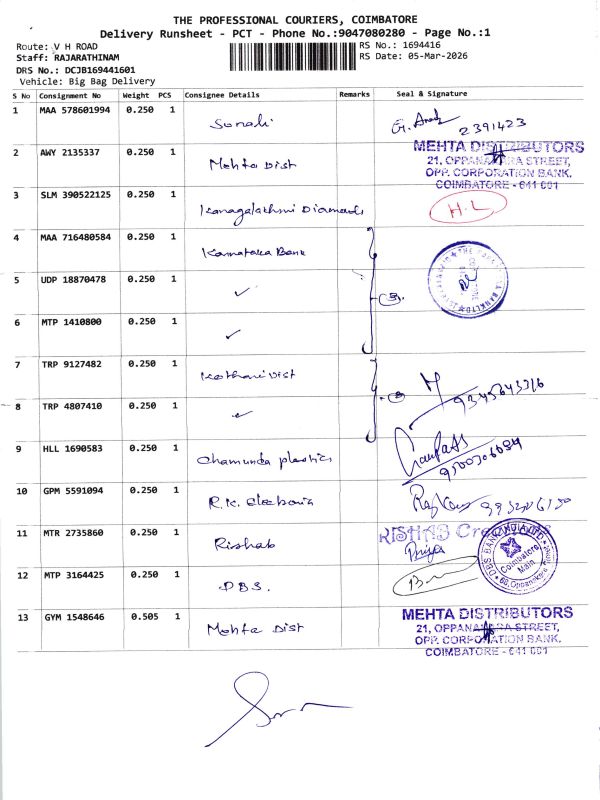 THE PROFESSIONAL COURIERS, COIMBATORE
Delivery Runsheet - PCT - Phone No.:9047080280 - Page No.:1
Route: V H ROAD RS No.: 1694416
Staff: RAJARATHINAM RS Date: 05-Mar-2026
DRS No.: DCJB169441601
Vehicle: Big Bag Delivery
S No Consignment No Weight PCS Consignee Details Remarks Seal & Signature
1 MAA 578601994 0.250 1 Sonali 2391423
2 AWY 2135337 0.250 1 Mehta Dist
MEHTA DISTRIBUTORS
21, OPPANAKARA STREET,
OPP. CORPORATION BANK.
COIMBATORE - 641 001
3 SLM 390522125 0.250 1 Kanagalakhmi Diamads H.L
4 MAA 716480584 0.250 1 Karnataka Bank
5 UDP 18870478 0.250 1 ✓
6 MTP 1410800 0.250 1 ✓
7 TRP 9127482 0.250 1 Kothari Dist
8 TRP 4807410 0.250 1 ✓
9 HLL 1690583 0.250 1 Chamunda plastics
10 GPM 5591094 0.250 1 R.K.
11 MTR 2735860 0.250 1 Rishab Priya
RISHAB Creations
12 MTP 3164425 0.250 1 DBS.
DBS BANK INDIA LTD
Coimbatore
Main
13 GYM 1548646 0.505 1 Mehta Dist
MEHTA DISTRIBUTORS
21, OPPANAKARA STREET,
OPP. CORPORATION BANK.
COIMBATORE - 641 001